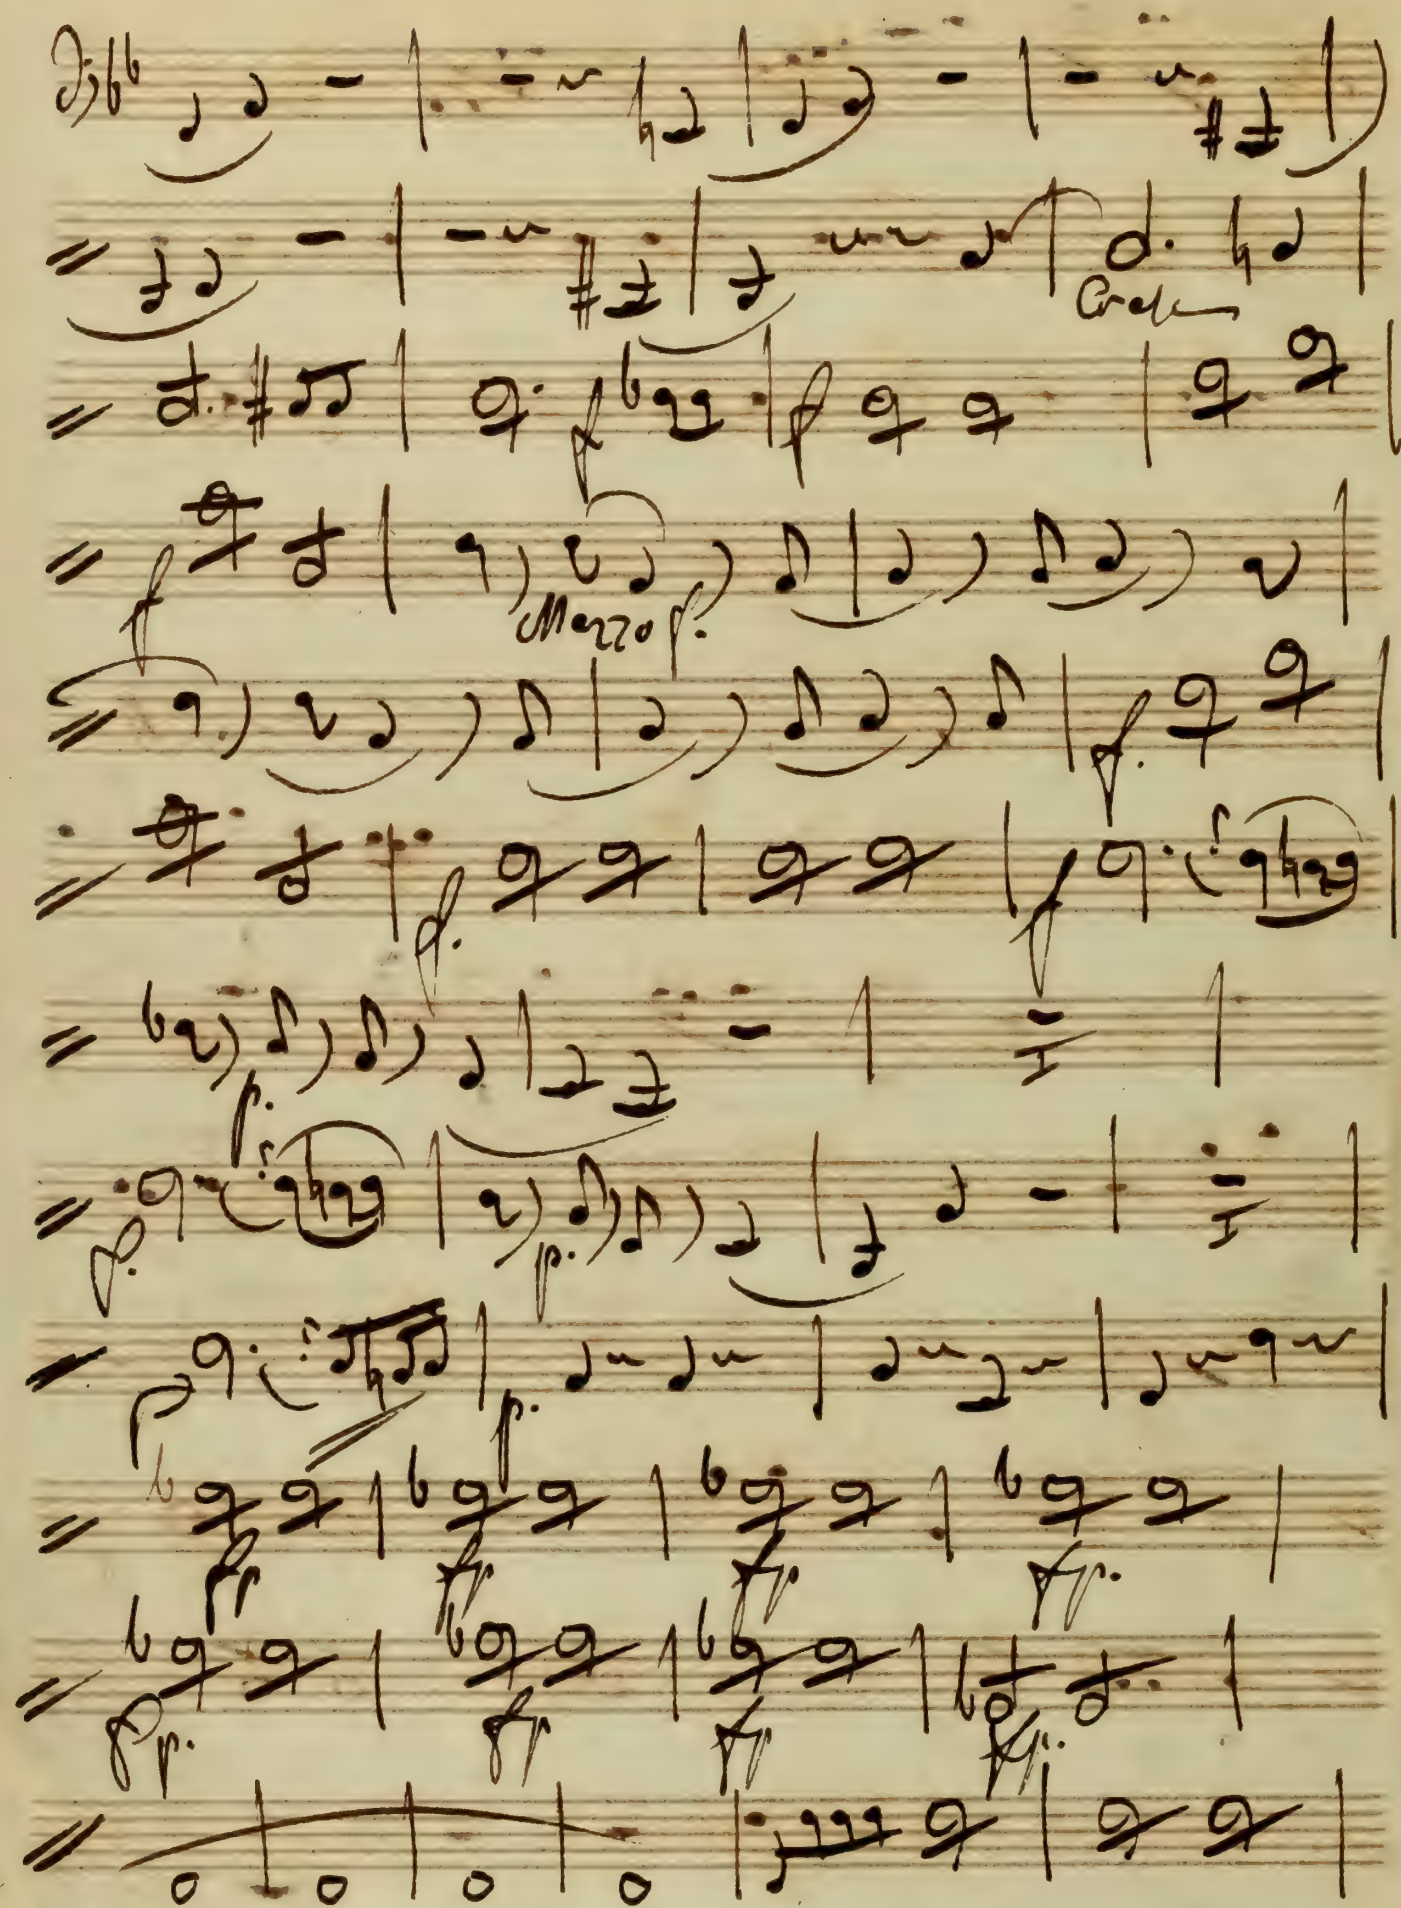 Cresc
f f
f
Mezzo f.
f.
f. f
p.
f. p.
p.
fp fp fp fp.
fp. fp fp fp.